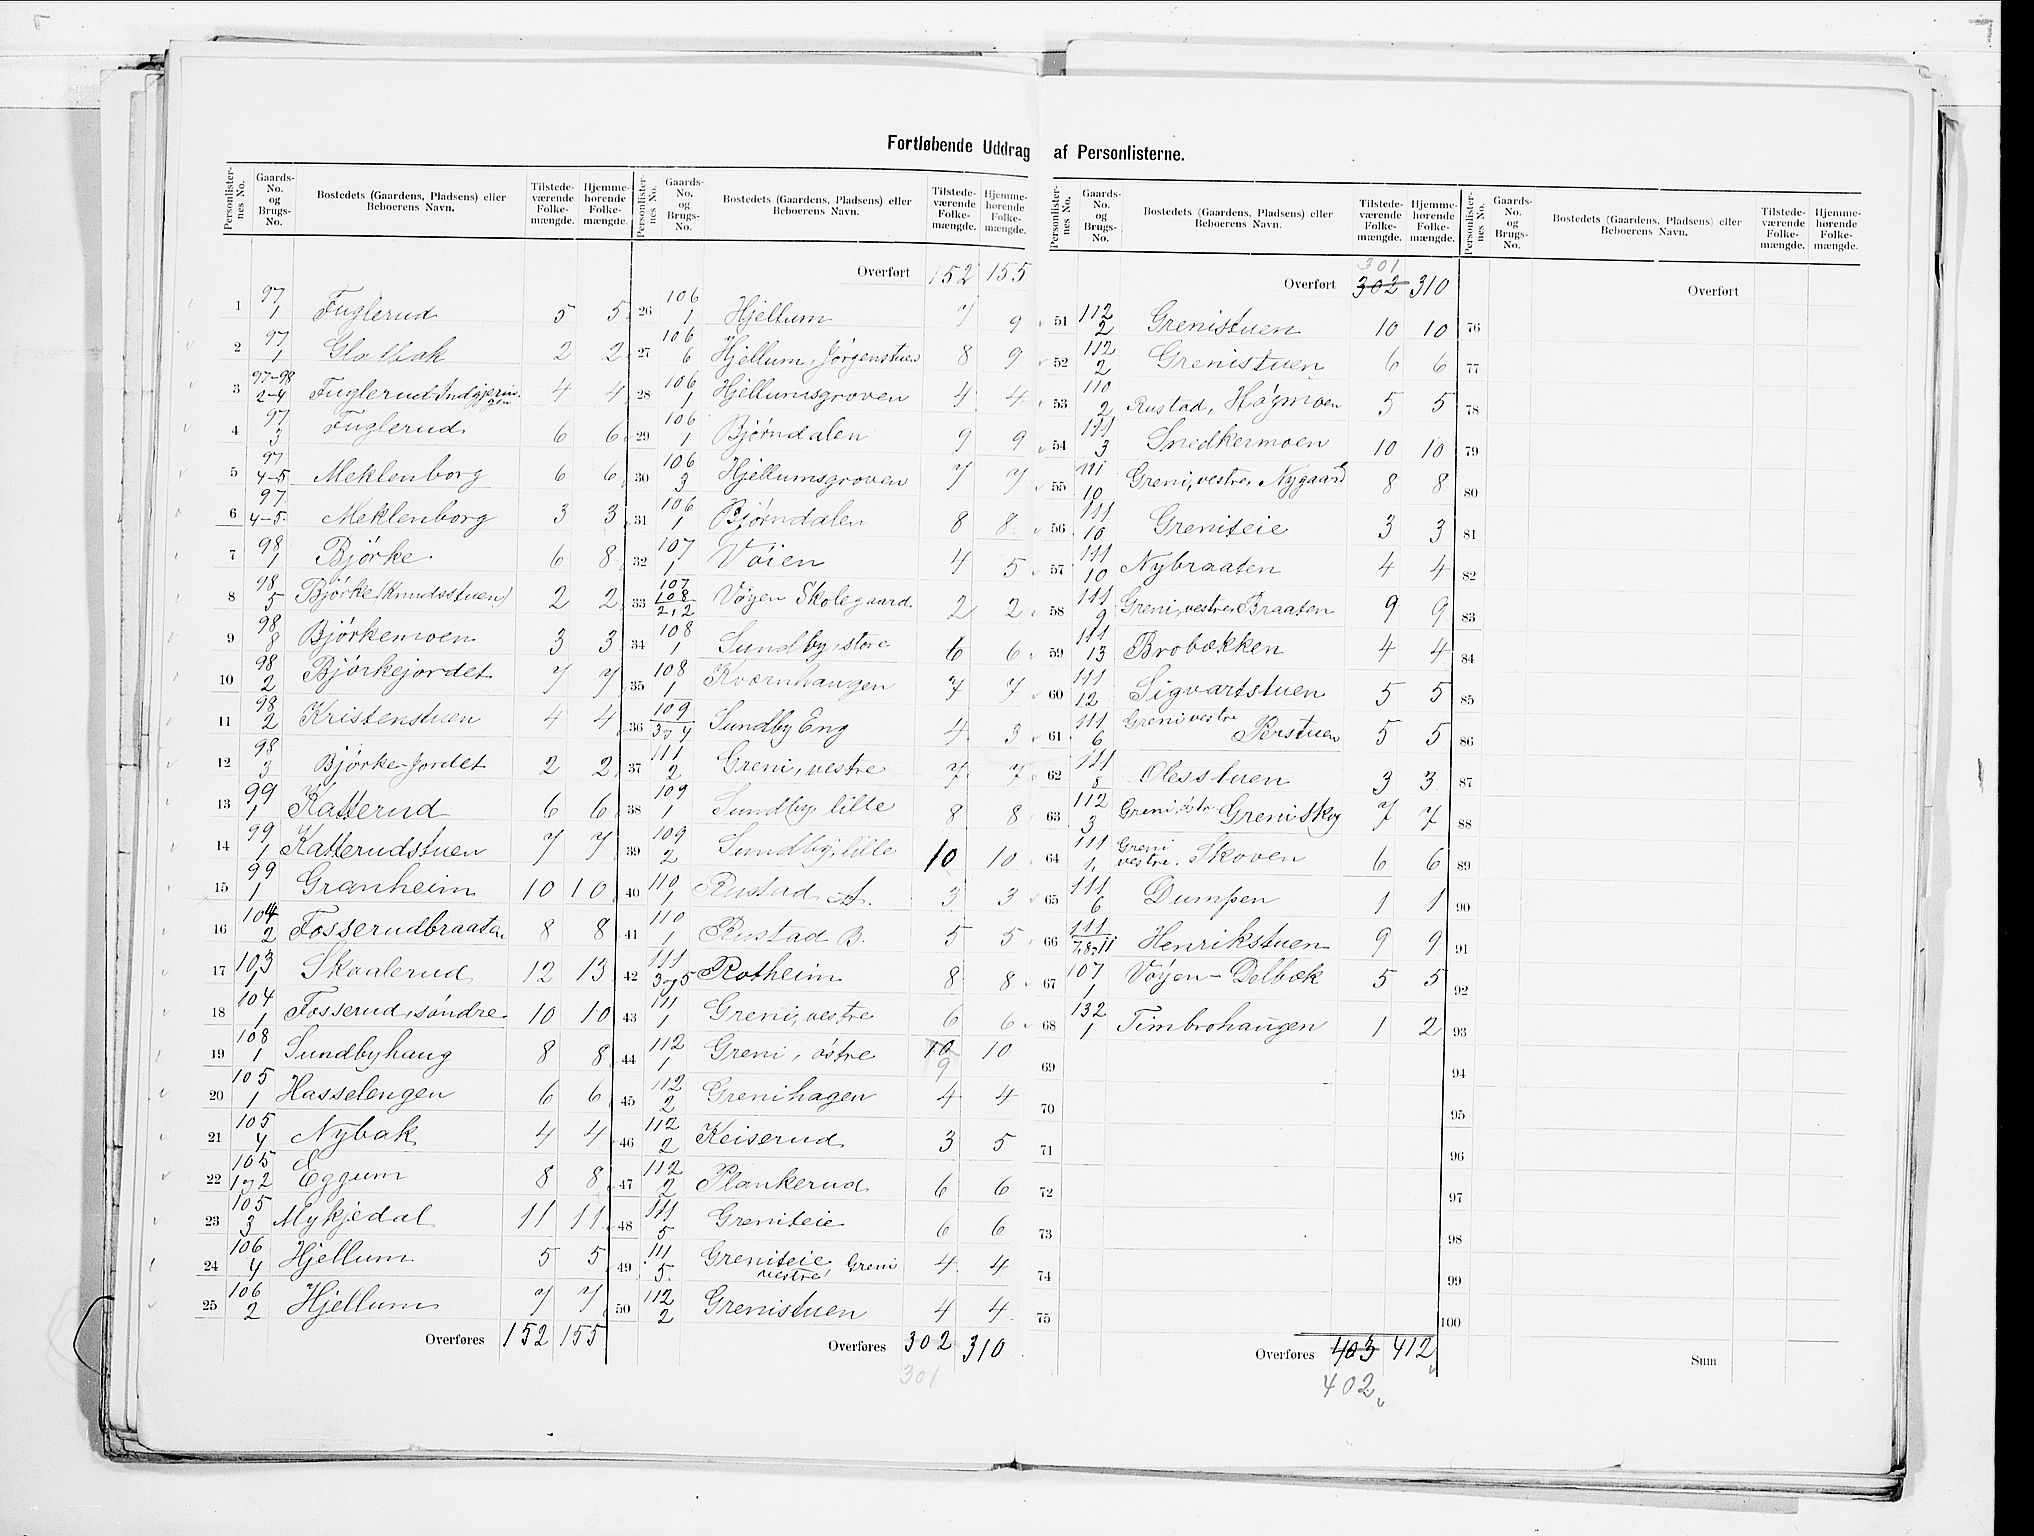 Fortløbende Uddrag af Personlisterne.
Personlister-nes No. Gaards-No. og Brugs-No. Bostedets (Gaardens, Pladsens) eller Beboerens Navn. Tilstede-værende Folke-mængde. Hjemme-hørende Folke-mængde.
1 97/1 Fuglerud 5 5
2 97/1 Glasbak 2 2
3 97-98/2-4 Fuglerud Indgjeringen 4 4
4 97/3 Fuglerud 6 6
5 97/4-5 Meklenborg 6 6
6 97/4-5. Meklenborg 3 3
7 98/1 Bjørke 6 8
8 98/5 Bjørke (Knudsstuen) 2 2
9 98/8 Bjørkemoen 3 3
10 98/2 Bjørkejordet 7 7
11 98/2 Kristenstuen 4 4
12 98/3 Bjørke-Jordet 2 2
13 99/1 Katterud 6 6
14 99/1 Katterudstuen 7 7
15 99/1 Granheim 10 10
16 104/2 Fosserudbraaten 8 8
17 103/1 Skaalerud 12 13
18 104/1 Fosserud, søndre 10 10
19 108/1 Sundbyhaug 8 8
20 105/1 Hasselengen 6 6
21 105/4 Nybak 4 4
22 105/1 og 2 Eggum 8 8
23 105/3 Mykjedal 11 11
24 106/4 Hjellum 5 5
25 106/2 Hjellum 7 7
Overføres 152 155
Personlister-nes No. Gaards-No. og Brugs-No. Bostedets (Gaardens, Pladsens) eller Beboerens Navn. Tilstede-værende Folke-mængde. Hjemme-hørende Folke-mængde.
Overført 152 155
26 106/1 Hjellum 7 9
27 106/6 Hjellum, Jørgenstuen 8 9
28 106/1 Hjellumsgroven 4 4
29 106/1 Bjørndalen 9 9
30 106/3 Hjellumsgroven 7 7
31 106/1 Bjørndalen 8 8
32 107/1 Vøien 4 5
33 107 108/2, 2 Vøyen Skolegaard. 2 2
34 108/1 Sundby, store 6 6
35 108/1 Kværnhaugen 7 7
36 109/3 og 4 Sundby Eng 4 3
37 111/2 Greni, vestre 7 7
38 109/1 Sundby, lille 8 8
39 109/2 Sundby, lille 10 10
40 110/1 Rustad A. 3 3
41 110/1 Rustad B. 5 5
42 111/3 og 5 Rotheim 8 8
43 111/1 Greni, vestre 6 6
44 112/1 Greni, østre 10 10
9
45 112/2 Grenihagen 4 4
46 112/2 Keiserud 3 5
47 112/2 Plankerud 6 6
48 111/5 Greniteie 6 6
49 111/5. Greniteie Greni vestre 4 4
50 112/2 Grenistuen 4 4
Overføres 302 310
301
Personlister-nes No. Gaards-No. og Brugs-No. Bostedets (Gaardens, Pladsens) eller Beboerens Navn. Tilstede-værende Folke-mængde. Hjemme-hørende Folke-mængde.
301
Overført 302 310
51 112/2 Grenistuen 10 10
52 112/2 Grenistuen 6 6
53 110/2 Rustad, Høgmoen 5 5
54 111/3 Snedkermoen 10 10
55 111/10 Greni, vestre, Nygaard 8 8
56 111/10 Greniteie 3 3
57 111/10 Nybraaten 4 4
58 111/9 Greni, vestre Braaten 9 9
59 111/13 Brobækken 4 4
60 111/12 Sigvartstuen 5 5
61 111/6 Greni vestre Perstuen 5 5
62 111/8 Olesstuen 3 3
63 112/3 Greni, østr Greniskog 7 7
64 111/1. Greni vestre. Skoven 6 6
65 111/6 Dumpen 1 1
66 111/7,8,11 Henrikstuen 9 9
67 107/1 Vøyen-Delbæk 5 5
68 132/1 Timbrohaugen 1 2
69
70
71
72
73
74
75
Overføres 403 412
402
Personlister-nes No. Gaards-No. og Brugs-No. Bostedets (Gaardens, Pladsens) eller Beboerens Navn. Tilstede-værende Folke-mængde. Hjemme-hørende Folke-mængde.
Overført
76
77
78
79
80
81
82
83
84
85
86
87
88
89
90
91
92
93
94
95
96
97
98
99
100
Sum